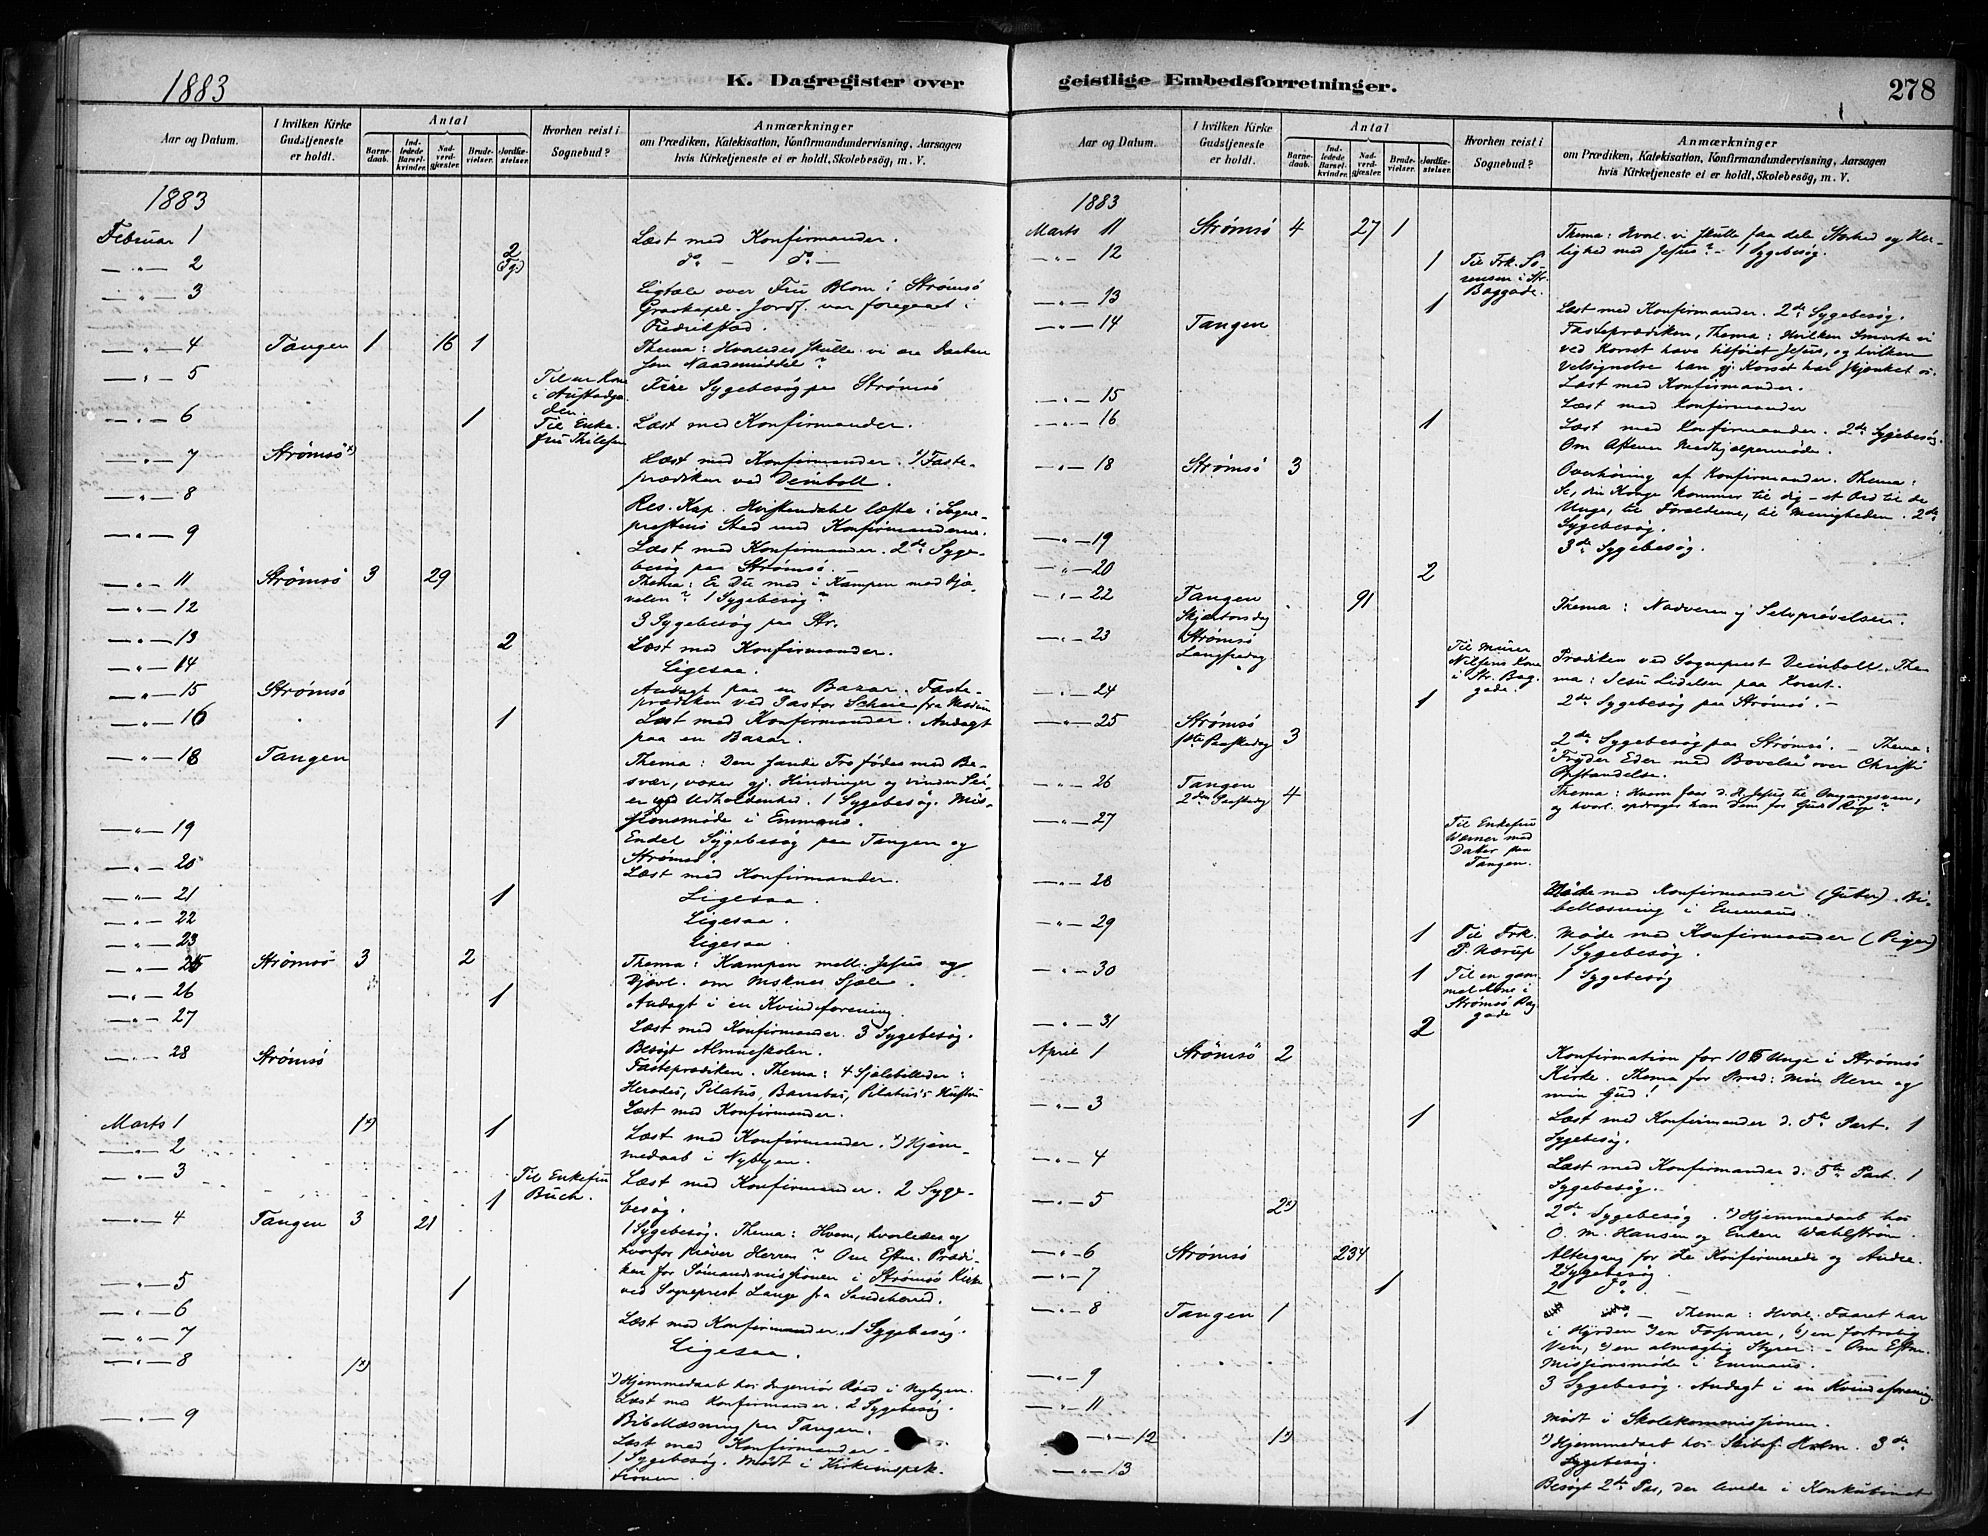 1883
K. Dagregister over geistlige Embedsforretninger.
278
Aar og Datum.
I hvilken Kirke Gudstjeneste er holdt.
Antal
Barnedaab.
Indledede Barselkvinder.
Nadverdgjæster.
Brudevielser.
Jordfæstelser.
Hvorhen reist i Sognebud?
Anmærkninger
om Prædiken, Katekisation, Konfirmandundervisning, Aarsagen
hvis Kirketjeneste ei er holdt, Skolebesøg, m. V.
1883
Februar 1 Læst med Konfirmander.
— " — 2 2 do — do —
— " — 3 Ligtale over Fru Blom i Strømsø
Gravkapel. Jordf. var foregaaet i
Fredrikstad.
— " — 4 Tangen 1 16 1 Thema: Hvorledes skulle vi ære Daaben
som Naademiddel?
— " — 5 Til en Kone i Fire Sygebesøg paa Strømsø
— " — 6 1 Til Enkefru Læst med Konfirmander.
— " — 7 Strømsø x) Læst med Konfirmander. x) Faste-
prædiken ved Deinboll.
— " — 8 Res. Kap. læste i Sogne-
prestens Sted med Konfirmanderne.
— " — 9 Læst med Konfirmander. 2de Syge-
besøg paa Strømsø.
— " — 11 Strømsø 3 29 Thema: Er Du med i Kampen mod Djæ-
velen? 1 Sygebesøg
— " — 12 3 Sygebesøg paa Str.
— " — 13 2 Læst med Konfirmander.
— " — 14 Ligesaa.
— " — 15 Strømsø Andagt paa en Bazar. Faste-
prædiken ved Pastor Scheie fra Modum
— " — 16 1 Læst med Konfirmander. Andagt
paa en Bazar.
— " — 18 Tangen Thema: Den sande Tro fødes med Be-
svær, voxer gj. Hindringer og vinder Sei-
er ved Udholdenhed. 1 Sygebesøg. Mis-
sionsmøde i Emmaus.
— " — 19 Endel Sygebesøg paa Tangen og
Strømsø.
— " — 20 Læst med Konfirmander.
— " — 21 1 Ligesaa.
— " — 22 Ligesaa.
— " — 23 Ligesaa.
— " — 25 Strømsø 3 2 Thema: Kampen mell. Jesus og
Djævl. om Msknes Sjæle.
— " — 26 1 Andagt i en Kvindeforening.
— " — 27 Læst med Konfirmander. 3 Sygebesøg.
Besøgt Almueskolen.
— " — 28 Strømsø Fasteprædiken. Thema: 4 Sjælebilleder:
Herodes, Pilatus, Barrabas, Pilatus's Hustru
Læst med Konfirmander.
Marts 1 1x) 1 Læst med Konfirmander. x) Hjem-
— " — 2 medaab i Nybyen.
— " — 3 1 Til Enkefru Buch. Læst med Konfirmander. 2 Syge-
besøg.
— " — 4 Tangen 3 21 1 Sygebesøg. Thema: Hvem, hvorledes og
hvorfor prøver Herren? Om Eftm. Prædi-
ken for Sømandsmissionen i Strømsø Kirke
— " — 5 1 ved Sogneprest Lange fra Sandeherred.
— " — 6 Læst med Konfirmander. 1 Sygebesøg.
— " — 7 Ligesaa.
— " — 8 1x) x) Hjemmedaab hos Ingeniør Roed i Nybyen.
Læst med Konfirmander. 2 Sygebesøg.
— " — 9 Bibellæsning paa Tangen.
Læst med Konfirmander.
1 Sygebesøg. Mødt i Kirkeinspek-
tionen.
Aar og Datum.
I hvilken Kirke Gudstjeneste er holdt.
Antal
Barnedaab.
Indledede Barselkvinder.
Nadverdgjæster.
Brudevielser.
Jordfæstelser.
Hvorhen reist i Sognebud?
Anmærkninger
om Prædiken, Katekisation, Konfirmandundervisning, Aarsagen
hvis Kirketjeneste ei er holdt, Skolebesøg, m. V.
1883
Marts 11 Strømsø 4 27 1 Thema: Hvorl. vi skulle faa dele Storhed og Her-
lighed med Jesus? — 1 Sygebesøg.
— " — 12 1 Til Frk. Sørensen i Str. Baggade.
— " — 13 1 Læst med Konfirmander. 2de Sygebesøg.
— " — 14 Tangen Fasteprædiken, Thema: Hvilken Smerte vi
ved Korset have tilføiet Jesus, og hvilken
Velsignelse han gj. Korset har skjænket os.
Læst med Konfirmander.
— " — 15 Læst med Konfirmander
— " — 16 1 Læst med Konfirmander. 2de Sygebesøg.
Om Aftenen Medhjælpermøde.
— " — 18 Strømsø 3 Overhøring af Konfirmander. Thema:
Se, din Konge kommer til dig — et Ord til de
Unge, til Forældrene, til Menigheden. 2de
Sygebesøg.
— " — 19 3de Sygebesøg.
— " — 20 2
— " — 22 Tangen Skjærtorsdag 91 Thema: Nadveren og Selvprøvelsen.
— " — 23 Strømsø Langfredag Til Murer Nilsens Kone i Str. Baggade. Prædiken ved Sogneprest Deinboll. The-
ma: Jesu Lidelser paa Korset.
— " — 24 1 2de Sygebesøg paa Strømsø. —
— " — 25 Strømsø 1ste Paaskedag 3 2de Sygebesøg paa Strømsø. — Thema:
"Fryder Eder med Bævelse" over Christi
Opstandelse.
— " — 26 Tangen 2den Paaskedag 4 Thema: Hvem faar d. H. Jesus til Omgangsven,
og hvorl. opdrager han dem for Guds Rige?
— " — 27 Til Enkefru Werner med Datter paa Tangen.
— " — 28 Møde med Konfirmander (Gutter). Bi-
bellæsning i Emmaus.
— " — 29 1 Til Frk. P. Nærup Møde med Konfirmander (Piger)
1 Sygebesøg.
— " — 30 1 Til en gammel Kone i Strømsø Baggade 1 Sygebesøg
— " — 31 2
April 1 Strømsø 2 Konfirmation for 106 Unge i Strømsø
Kirke. Thema for Præd: Min Herre og
min Gud!
— " — 3 1 Læst med Konfirmander d. 5te Part. 1
Sygebesøg.
— " — 4 Læst med Konfirmander d. 5te Part. 1
Sygebesøg.
— " — 5 2x) 2de Sygebesøg. x) Hjemmedaab hos
O. M. Hansen og Enken Wahlstrøm.
— " — 6 Strømsø 234 Altergang for de Konfirmerede og Andre.
2 Sygebesøg.
— " — 7 1 2 do —
— " — 8 Tangen 1 — Thema: Hvorl. Faaret har
i Hyrden a) en Forsvarer, b) en fortrolig
Ven, c) en almægtig Styrer. — Om Eftm.
Missionsmøde i Emmaus.
— " — 9 3 Sygebesøg. Andagt i en Kvindeforening.
— " — 11 1 Mødt i Skolekommissionen.
— " — 12 1x) x) Hjemmedaab hos Skibsf. Holm. 3de
Sygebesøg.
— " — 13 Besøgt 2de Par, der levede i Konkubinat